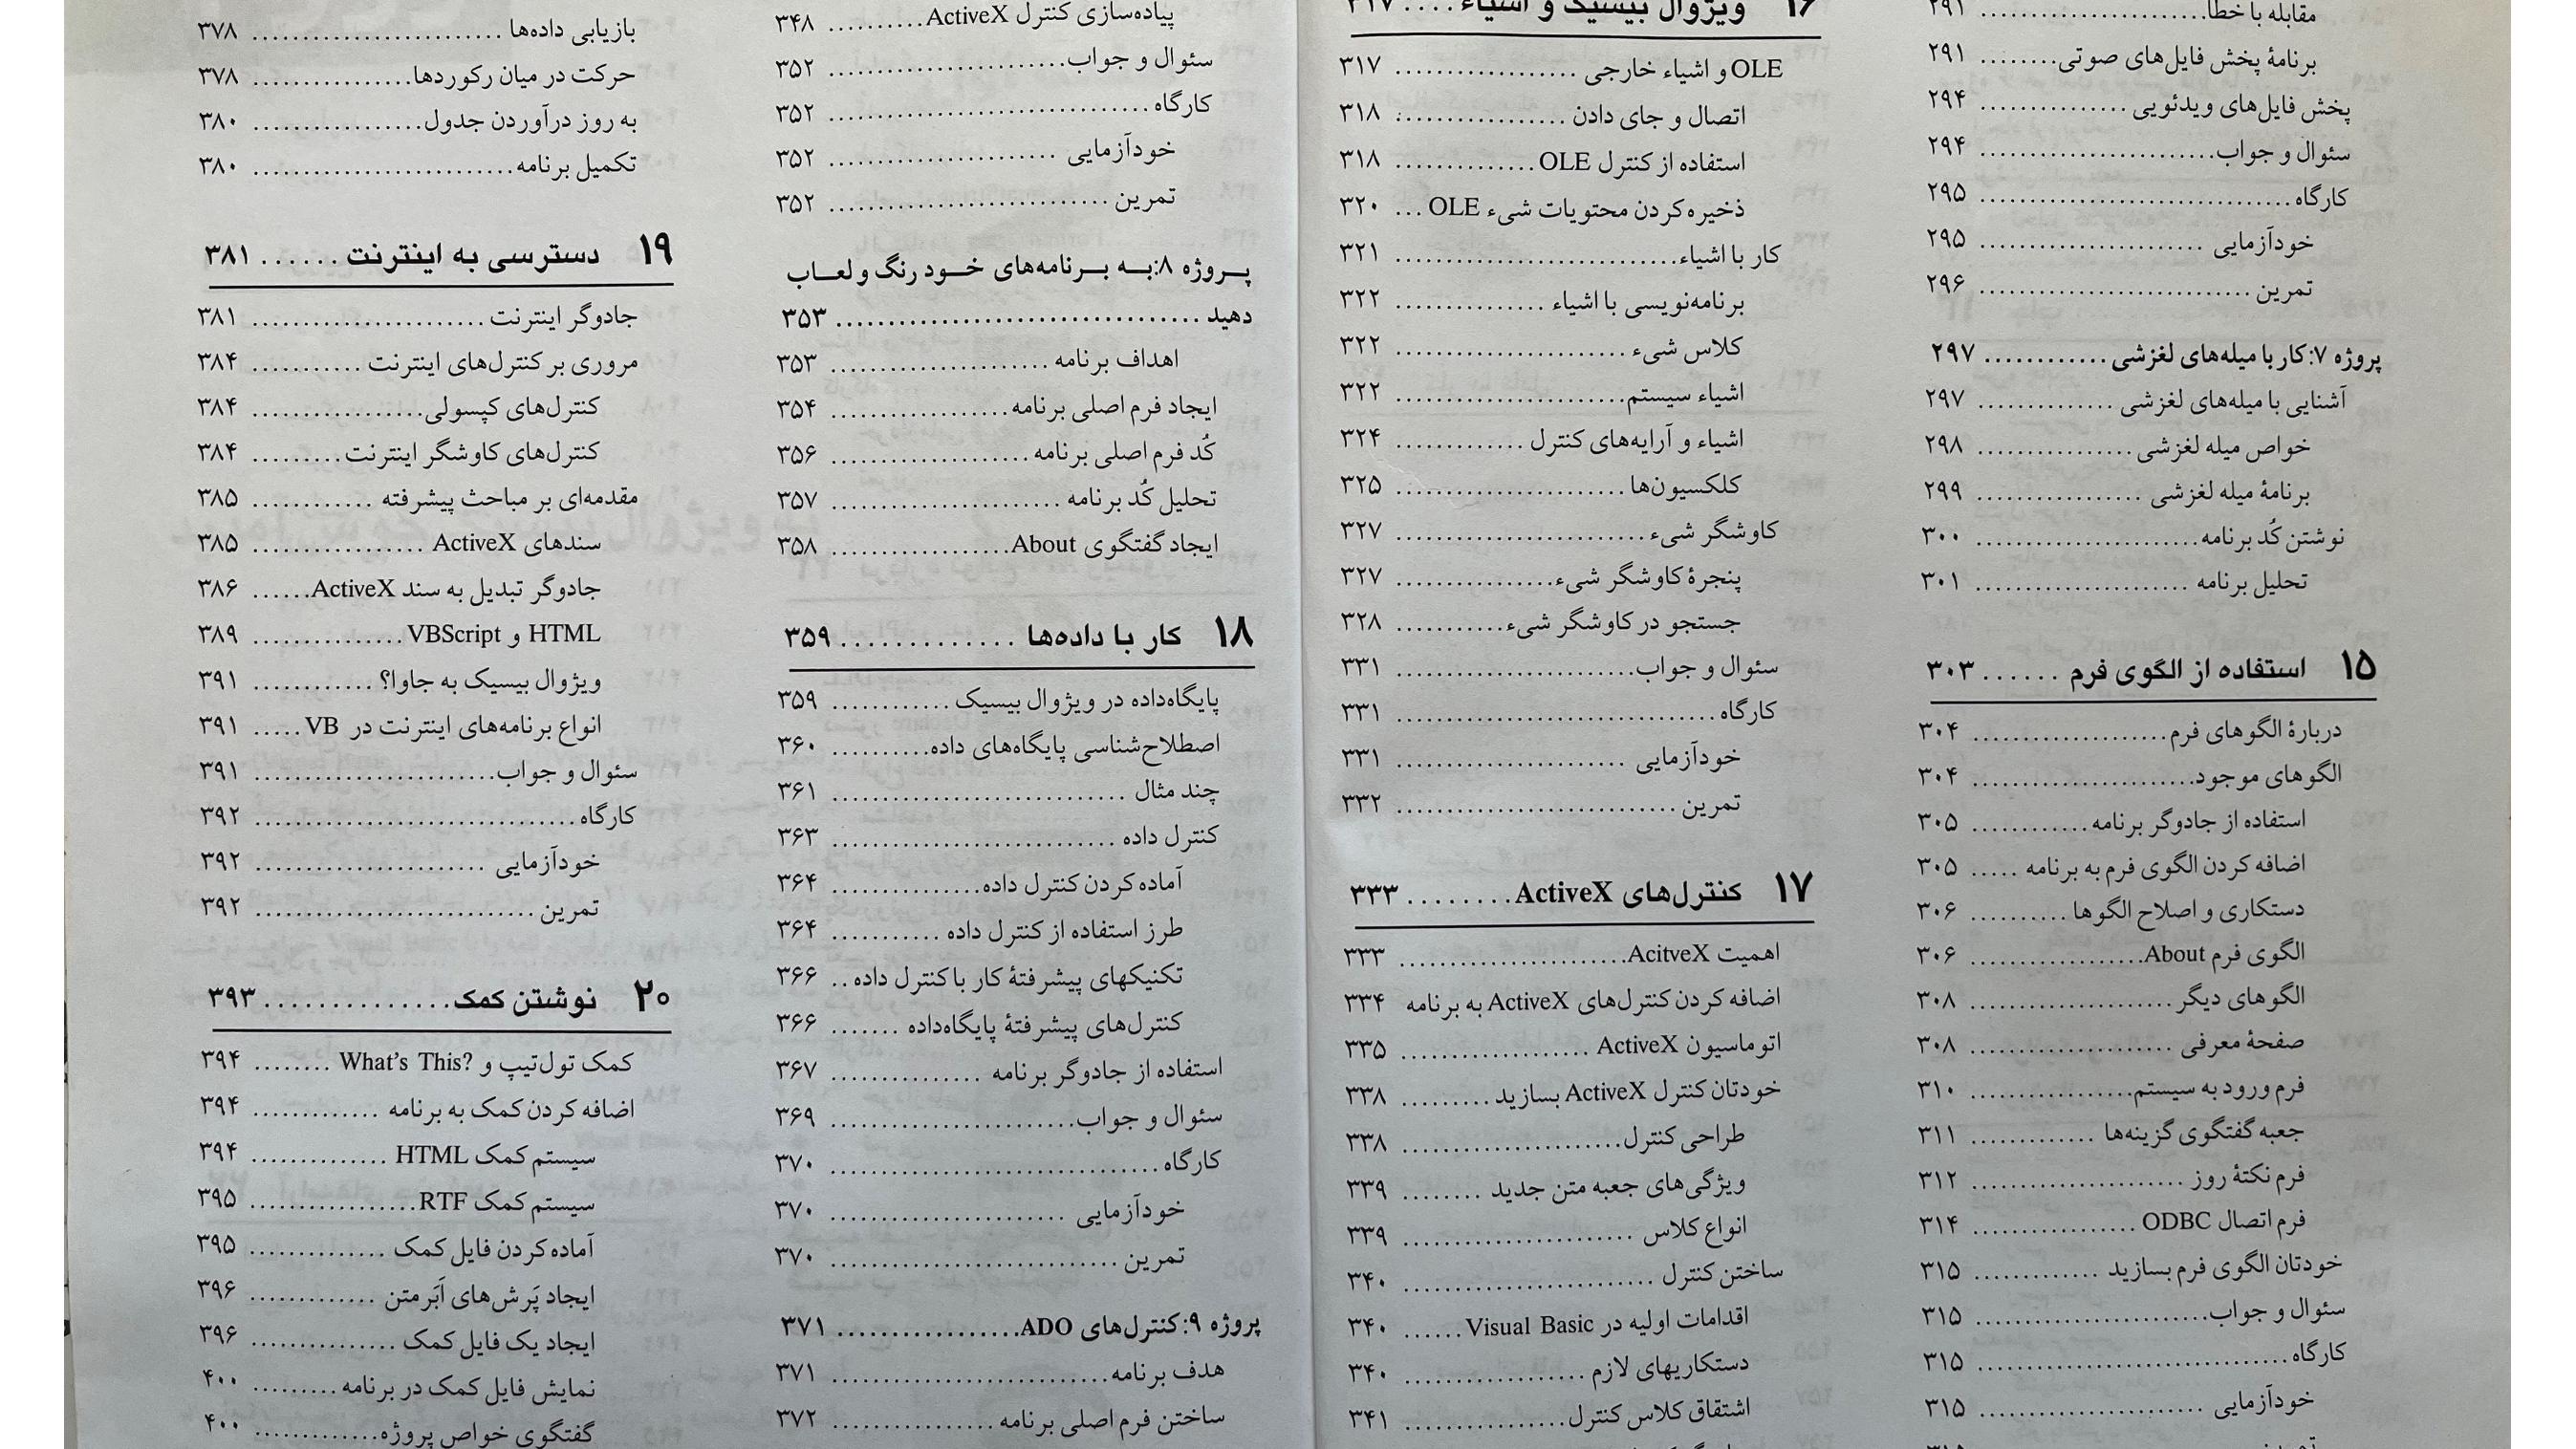 مقابله با خطا........................ ۲۹۱
برنامهٔ پخش فایل‌های صوتی........ ۲۹۱
پخش فایل‌های ویدئویی ............... ۲۹۴
سئوال و جواب........................ ۲۹۴
کارگاه................................ ۲۹۵
خودآزمایی ....................... ۲۹۵
تمرین............................ ۲۹۶
پروژه ۷:کار با میله‌های لغزشی............ ۲۹۷
آشنایی با میله‌های لغزشی .............. ۲۹۷
خواص میله لغزشی................ ۲۹۸
برنامهٔ میله لغزشی ................. ۲۹۹
نوشتن کُد برنامه....................... ۳۰۰
تحلیل برنامه ...................... ۳۰۱
۱۵ استفاده از الگوی فرم ...... ۳۰۳
دربارهٔ الگوهای فرم.................... ۳۰۴
الگوهای موجود....................... ۳۰۴
استفاده از جادوگر برنامه............ ۳۰۵
اضافه کردن الگوی فرم به برنامه ..... ۳۰۵
دستکاری و اصلاح الگوها .......... ۳۰۶
الگوی فرم About.................. ۳۰۶
الگوهای دیگر ..................... ۳۰۸
صفحهٔ معرفی ..................... ۳۰۸
فرم ورود به سیستم................. ۳۱۰
جعبه گفتگوی گزینه‌ها ............. ۳۱۱
فرم نکتهٔ روز ...................... ۳۱۲
فرم اتصال ODBC ................. ۳۱۴
خودتان الگوی فرم بسازید ............. ۳۱۵
سئوال و جواب........................ ۳۱۵
کارگاه................................ ۳۱۵
خودآزمایی ....................... ۳۱۵
۱۶ ویژوال بیسیک و اشیاء .... ۳۱۷
OLE و اشیاء خارجی ................... ۳۱۷
اتصال و جای دادن ................. ۳۱۸
استفاده از کنترل OLE.............. ۳۱۸
ذخیره کردن محتویات شیء OLE ... ۳۲۰
کار با اشیاء............................ ۳۲۱
برنامه‌نویسی با اشیاء ............... ۳۲۲
کلاس شیء ....................... ۳۲۲
اشیاء سیستم....................... ۳۲۲
اشیاء و آرایه‌های کنترل ............. ۳۲۴
کلکسیون‌ها ....................... ۳۲۵
کاوشگر شیء......................... ۳۲۷
پنجرهٔ کاوشگر شیء................ ۳۲۷
جستجو در کاوشگر شیء........... ۳۲۸
سئوال و جواب........................ ۳۳۱
کارگاه................................ ۳۳۱
خودآزمایی ....................... ۳۳۱
تمرین ............................ ۳۳۲
۱۷ کنترل‌های ActiveX ........ ۳۳۳
اهمیت AcitveX....................... ۳۳۳
اضافه کردن کنترل‌های ActiveX به برنامه ۳۳۴
اتوماسیون ActiveX ................... ۳۳۵
خودتان کنترل ActiveX بسازید ......... ۳۳۸
طراحی کنترل...................... ۳۳۸
ویژگی‌های جعبه متن جدید ........ ۳۳۹
انواع کلاس ....................... ۳۳۹
ساختن کنترل ......................... ۳۴۰
اقدامات اولیه در Visual Basic ...... ۳۴۰
دستکاریهای لازم .................. ۳۴۰
اشتقاق کلاس کنترل................ ۳۴۱
پیاده‌سازی کنترل ActiveX.......... ۳۴۸
سئوال و جواب........................ ۳۵۲
کارگاه................................ ۳۵۲
خودآزمایی ....................... ۳۵۲
تمرین ............................ ۳۵۲
پــروژه ۸:بــه بــرنامه‌های خــود رنگ و لعــاب
دهید .................................. ۳۵۳
اهداف برنامه ...................... ۳۵۳
ایجاد فرم اصلی برنامه.................. ۳۵۴
کُد فرم اصلی برنامه .................... ۳۵۶
تحلیل کُد برنامه ....................... ۳۵۷
ایجاد گفتگوی About.................. ۳۵۸
۱۸ کار با داده‌ها .............. ۳۵۹
پایگاه‌داده در ویژوال بیسیک ............ ۳۵۹
اصطلاح‌شناسی پایگاه‌های داده.......... ۳۶۰
چند مثال .............................. ۳۶۱
کنترل داده ............................. ۳۶۳
آماده کردن کنترل داده............... ۳۶۴
طرز استفاده از کنترل داده ........... ۳۶۴
تکنیکهای پیشرفتهٔ کار با کنترل داده .. ۳۶۶
کنترل‌های پیشرفتهٔ پایگاه‌داده ....... ۳۶۶
استفاده از جادوگر برنامه ............... ۳۶۷
سئوال و جواب......................... ۳۶۹
کارگاه................................. ۳۷۰
خودآزمایی ........................ ۳۷۰
تمرین ............................. ۳۷۰
پروژه ۹:کنترل‌های ADO................. ۳۷۱
هدف برنامه............................ ۳۷۱
ساختن فرم اصلی برنامه ................ ۳۷۲
بازیابی داده‌ها ......................... ۳۷۸
حرکت در میان رکوردها................ ۳۷۸
به روز درآوردن جدول................. ۳۸۰
تکمیل برنامه.......................... ۳۸۰
۱۹ دسترسی به اینترنت ...... ۳۸۱
جادوگر اینترنت........................ ۳۸۱
مروری بر کنترل‌های اینترنت ........... ۳۸۴
کنترل‌های کپسولی................. ۳۸۴
کنترل‌های کاوشگر اینترنت......... ۳۸۴
مقدمه‌ای بر مباحث پیشرفته ............ ۳۸۵
سندهای ActiveX ................. ۳۸۵
جادوگر تبدیل به سند ActiveX...... ۳۸۶
HTML و VBScript............... ۳۸۹
ویژوال بیسیک به جاوا؟ ............ ۳۹۱
انواع برنامه‌های اینترنت در VB ..... ۳۹۱
سئوال و جواب........................ ۳۹۱
کارگاه................................ ۳۹۲
خودآزمایی ....................... ۳۹۲
تمرین............................ ۳۹۲
۲۰ نوشتن کمک............... ۳۹۳
کمک تول‌تیپ و What's This? ........ ۳۹۴
اضافه کردن کمک به برنامه ............. ۳۹۴
سیستم کمک HTML .............. ۳۹۴
سیستم کمک RTF................. ۳۹۵
آماده کردن فایل کمک .............. ۳۹۵
ایجاد پَرش‌های اَبَرمتن ............. ۳۹۶
ایجاد یک فایل کمک ............... ۳۹۶
نمایش فایل کمک در برنامه ......... ۴۰۰
گفتگوی خواص پروژه............. ۴۰۰